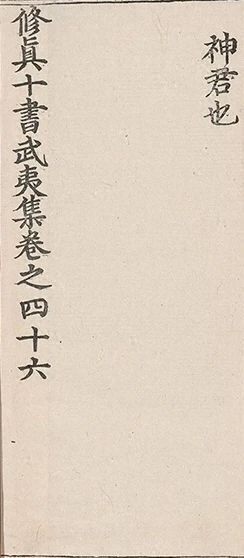 神君也
修眞十書武夷集卷之四十六